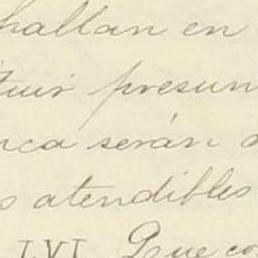 hallan en
tuir presun
nca serán
s atendibles
LVI. Que co